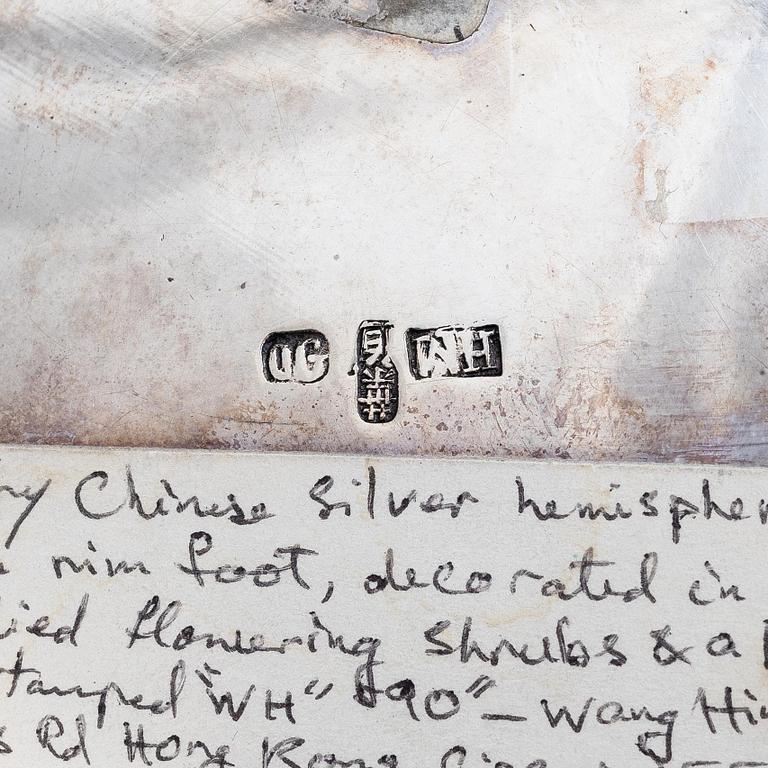 UG WH
Chinese Silver hemispher
rim foot, decorated in
flowering shrubs & a
"WH" & "90" — Wang Hi
Rd Hong Kong